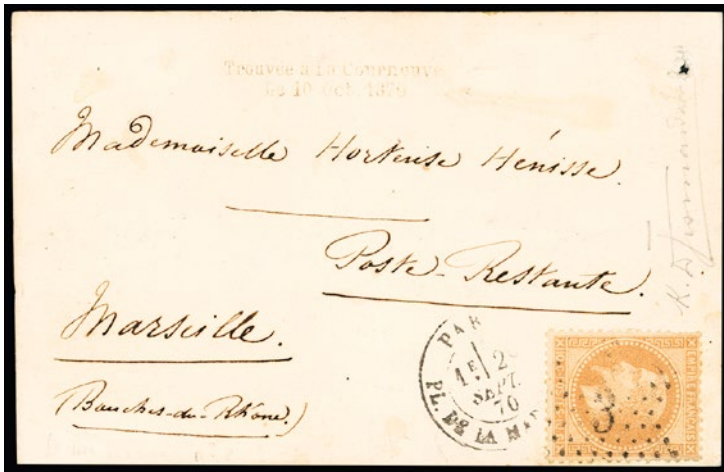 Trouvée à la Courneuve
Le 10 Oct. 1870
Mademoiselle Hortense Hénisse.
Poste-Restante.
Marseille.
(Bouches-du-Rhône.)
PAR
1E 2
SEPT.
70
PL. DE LA MA
3
EMPIRE FRANÇAIS